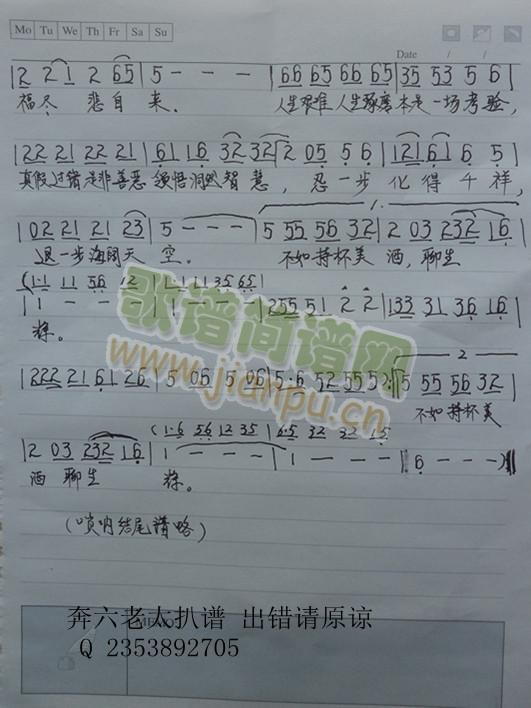 Mo Tu We Th Fr Sa Su
Date / /
2 2 1 2 65 | 5 - - - | 66 65 66 65 | 35 53 5 6 |
福尽 悲自 来. 人生艰难 人生琢磨 本是一场考验,
22 22 22 21 | 61 16 32 32 | 2 05 5 6 | 121 61 6 5 |
真假过错是非善恶 领悟洞然智慧, 忍一步化得千祥,
1.
| 02 21 21 23 | 5 - - - | 5 55 56 32 | 2 03 232 16 |
退一步海阔天 空. 不如持杯美 酒, 聊生
(1·1 11 56 12 | 1 11 35 65)
| 1 - - - | 1 - - - | 255 51 2 2 | 133 31 36 16 |
粽。
2
| 222 21 61 26 | 5 05 5 06 | 5·6 52 55 52 :‖ 5 55 56 32 |
不如持杯美
(1·6 56 12 35 | 6·5 32
| 2 03 232 16 | 1 - - - | 1 - - - ‖ 6 - - - ‖
酒 聊生 粽。
(唢呐结尾谱略)
歌谱简谱网
www.jianpu.cn
奔六老太扒谱 出错请原谅
Q 2353892705